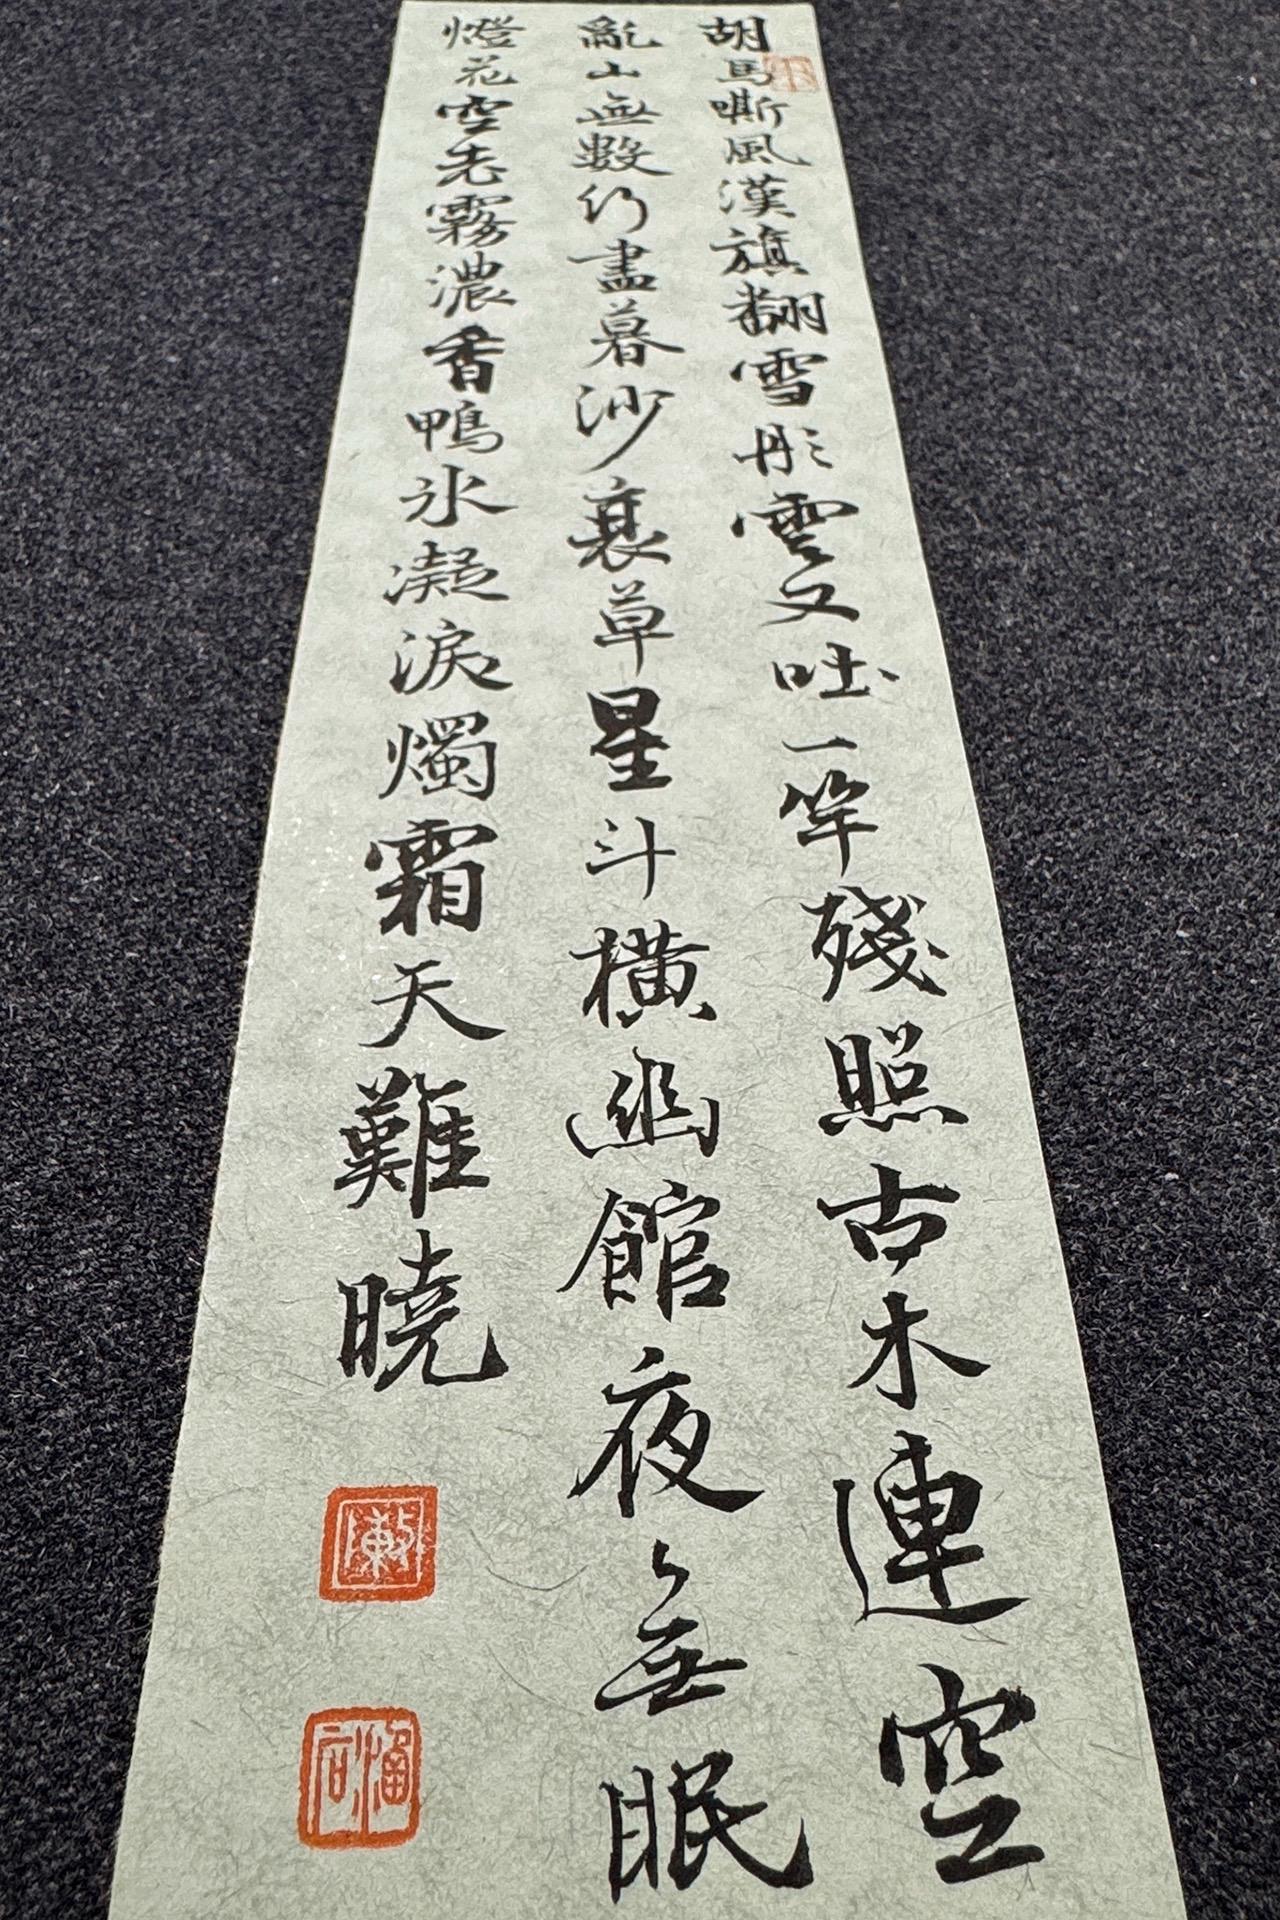 胡馬嘶風漢旗翻雪彤雲又吐一竿殘照古木連空
亂山無數行盡暮沙衰草星斗橫幽館夜無眠
燈花空老霧濃香鴨冰凝淚燭霜天難曉